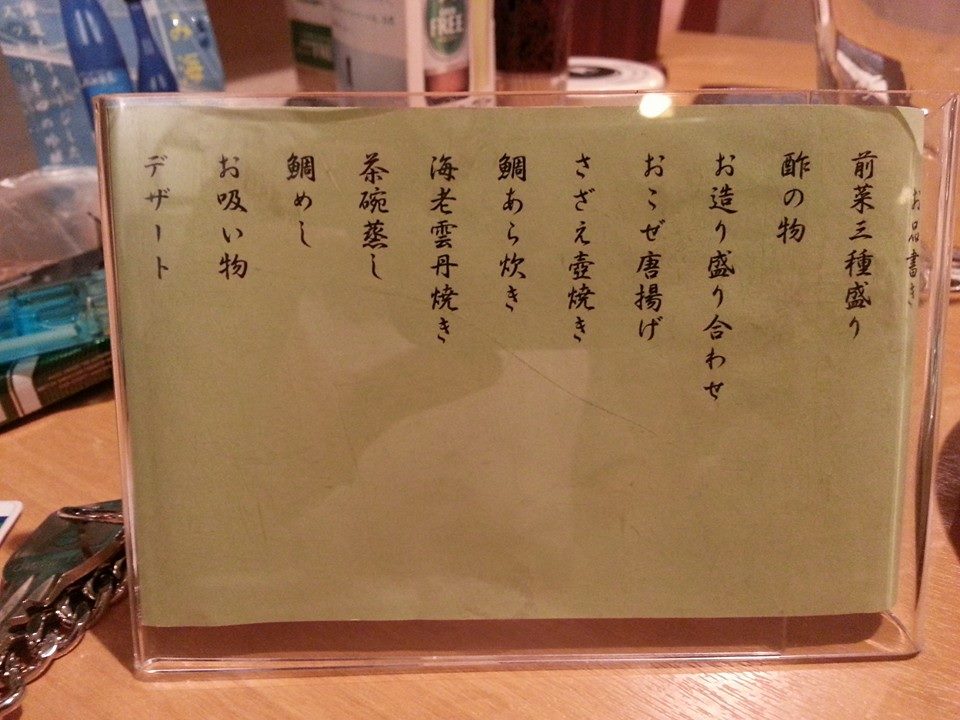 お品書き
前菜三種盛り
酢の物
お造り盛り合わせ
おこぜ唐揚げ
さざえ壺焼き
鯛あら炊き
海老雲丹焼き
茶碗蒸し
鯛めし
お吸い物
デザート
FREE